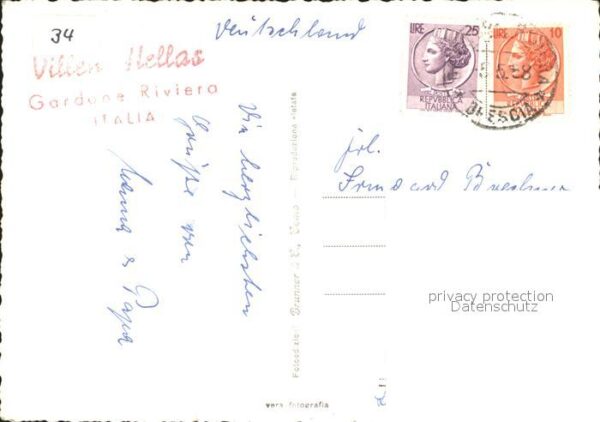 34
Deutschland
Villen Hellas
Gardone Riviera
ITALIA
LIRE 25
REPVBBLICA
ITALIANA
LIRE 10
BRESCIA
Die herzlichsten
Grüße von
Mama & Papa
Frl.
vera fotografia
Riproduzione vietata
Brunner & C., Como
privacy protection
Datenschutz